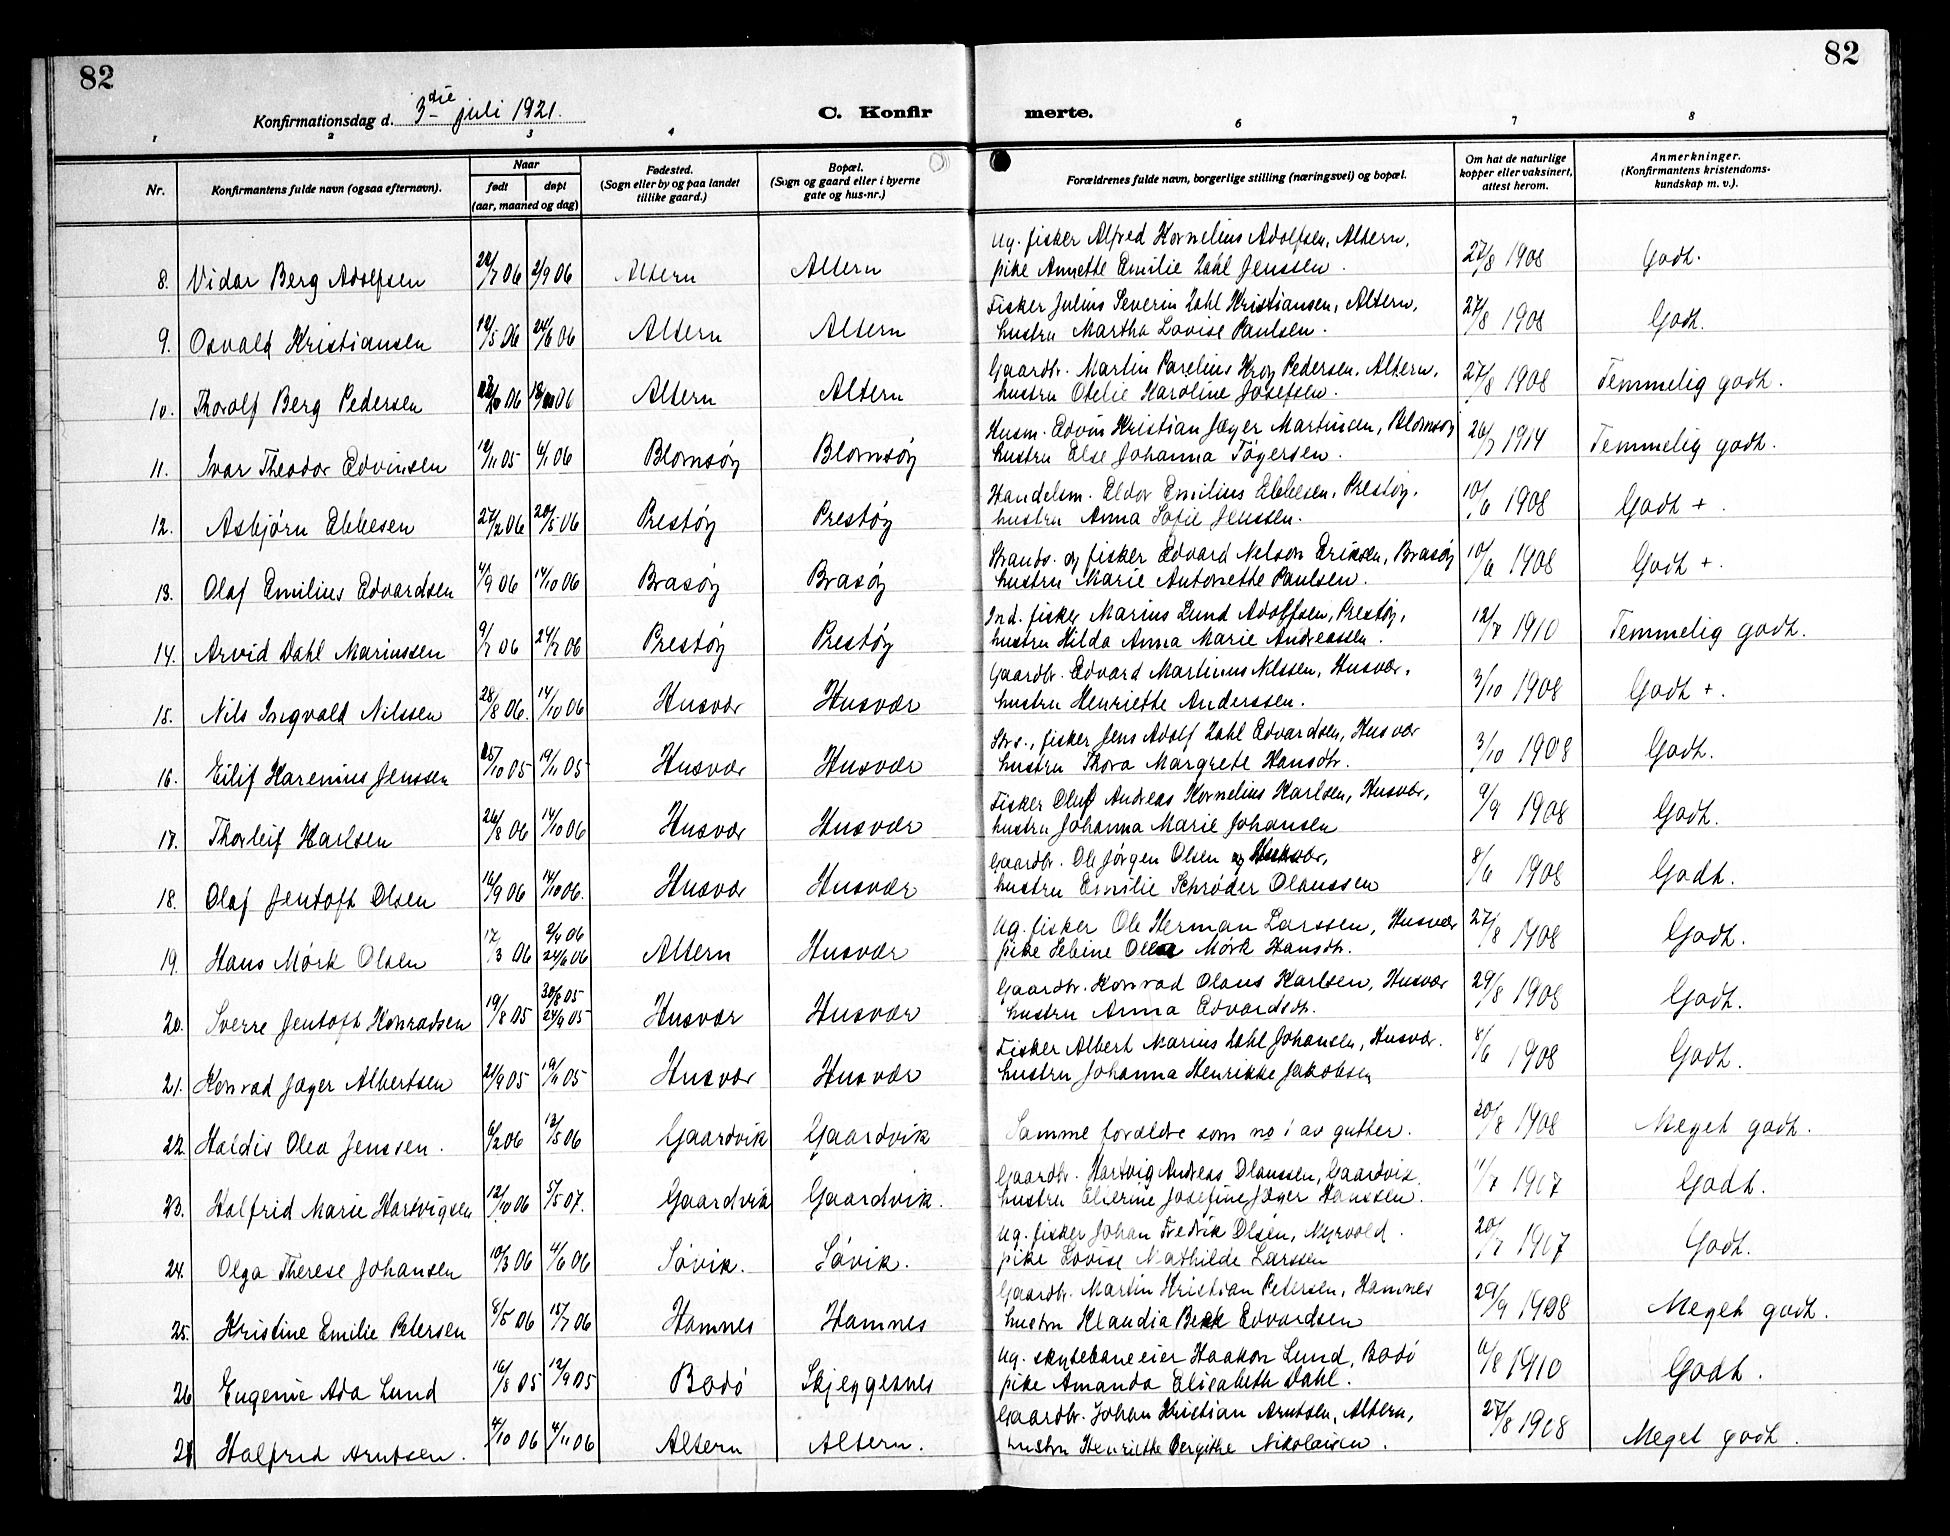 82
82
Konfirmationsdag d. 3die juli 1921.
C. Konfir
merte.
1 2 3 4 6 7 8
Nr.
Konfirmantens fulde navn (ogsaa efternavn).
Naar
født
døpt
(aar, maaned og dag)
Fødested.
(Sogn eller by og paa landet
tillike gaard.)
Bopæl.
(Sogn og gaard eller i byerne
gate og hus-nr.)
Forældrenes fulde navn, borgerlige stilling (næringsvei) og bopæl.
Om hat de naturlige
kopper eller vaksinert,
attest herom.
Anmerkninger.
(Konfirmantens kristendoms-
kundskap m. v.).
Ug. fisker Alfred Kornelius Adolfsen, Altern,
8. Vidar Berg Adolfsen /7 06 2/9 06 Altern Altern pike Annette Emilie Dahl Jenssen. 27/8 1908 Godt.
Fisker Julius Severin Dahl Kristiansen, Altern,
9. Osvald Kristiansen 12/5 06 24/6 06 Altern Altern hustru Martha Lovise Paulsen. 27/8 1908 Godt.
Gaardbr. Martin Parelius Krog Pedersen, Altern,
10. Thorolf Berg Pedersen 06 06 Altern Altern hustru Otelie Karoline Josefsen. 27/8 1908 Temmelig godt.
Husm. Edvin Kristian Jæger Martinsen, Blomsøy
11. Ivar Theodor Edvinsen 12/11 05 6/1 06 Blomsøy Blomsøy hustru Else Johanna Tøgersen. 26/7 1914 Temmelig godt.
Handelsm. Eldor Emilius Ebbesen, Prestøy,
12. Asbjørn Ebbesen 27/2 06 20/5 06 Prestøy Prestøy hustru Anna Sofie Jenssen. 10/6 1908 Godt +.
Strands. og fisker Edvard Nelson Eriksen, Brasøy
13. Olaf Emilius Edvardsen 4/9 06 14/10 06 Brasøy Brasøy hustru Marie Antonette Paulsen. 10/6 1908 Godt +.
Ind. fisker Marius Lund Adolfsen, Prestøy,
14. Arvid Dahl Mariussen 9/7 06 06 Prestøy Prestøy hustru Hilda Anna Marie Andreassen. 12/7 1910 Temmelig godt.
Gaardbr. Edvard Martinus Nilssen, Husvær,
15. Nils Ingvald Nilssen 28/8 06. 14/10 06 Husvær Husvær hustru Henriette Anderssen. 3/10 1908 Godt +.
Strs., fisker Jens Adolf Dahl Edvardsen, Husvær
16. Eilif Harenius Jenssen 25/10 05 19/11 05 Husvær Husvær hustru Thora Margrete Hansdtr. 3/10 1908 Godt.
Fisker Oluf Andreas Kornelius Karlsen, Husvær,
17. Thorleif Karlsen 26/8 06 14/10 06 Husvær Husvær hustru Johanna Marie Johansen 9/9 1908 Godt.
Gaardbr. Ole Jørgen Olsen Husvær,
18. Olaf Jentoft Olsen 16/9 06 14/10 06. Husvær Husvær hustru Emilie Schrøder Olaussen 8/6 1908 Godt.
Ug. fisker Ole Herman Larssen, Husvær
19. Hans Mørk Olsen 17/3 06 2/4 06 24/6 06 Altern Husvær pike Sebine Olea Mørk Hansdtr. 27/8 1908 Godt.
Gaardbr. Konrad Olaus Karlsen, Husvær
20. Sverre Jentoft Konradsen 19/8 05 30/8 05 24/9 05 Husvær Husvær hustru Anna Edvardsdtr. 29/8 1908 Godt.
Fisker Albert Marius Dahl Johansen, Husvær.
21. Konrad Jæger Albertsen 21/9 05 19/11 05 Husvær Husvær hustru Johanna Henrikke Jakobsen 8/6 1908 Godt.
22. Haldis Olea Jenssen. 6/2 06 13/5 06 Gaardvik Gaardvik Samme forældre som no 1 av gutter. 20/8 1908 Meget godt.
Gaardbr. Hartvig Andreas Olaussen, Gaardvik.
23. Halfrid Marie Hartvigsen 12/10 06 5/5 07. Gaardvik Gaardvik. hustru Elierine Josefine Jæger Hanssen. 11/7 1907 Godt.
Ug. fisker Johan Fredrik Olsen, Myrvold.
24. Olga Therese Johansen 10/3 06 4/6 06 Søvik. Søvik. pike Lovise Mathilde Larssen 20/7 1907 Godt.
Gaardbr. Martin Kristian Petersen, Hamnes
25. Kristine Emilie Petersen 8/5 06 15/7 06 Hamnes Hamnes hustru Klaudia Bekk Edvardsen 29/9 1908 Meget godt.
Ug. skytebaneeier Haakon Lund, Bodø
26 Eugenie Ada Lund 16/8 05 12/9 05 Bodø Skjeggesnes pike Amanda Elisabeth Dahl. 11/8 1910 Godt.
Gaardbr. Johan Kristian Arntsen, Altern,
27 Halfrid Arntsen. 4/10 06 4/11 06 Altern Altern. hustru Henriette Bergitte Nikolaisen. 27/8 1908 Meget godt.